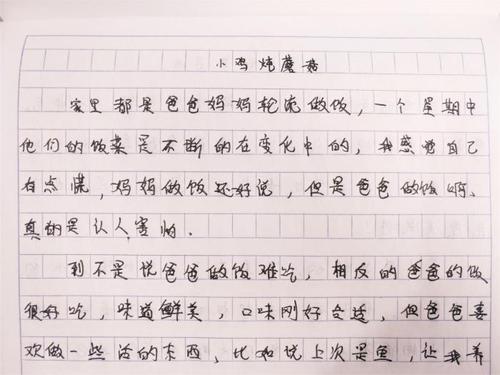 小鸡炖蘑菇
家里都是爸爸妈妈轮流做饭，一个星期中
他们的饭菜是不断的在变化中的，我感觉自己
有点慌，妈妈做饭还好说，但是爸爸做饭啊、
真的是让人害怕．
到不是说爸爸做饭难吃，相反的爸爸的做
很好吃，味道鲜美，口味刚好合适，但爸爸喜
欢做一些活的东西，比如说上次是鱼，让我养